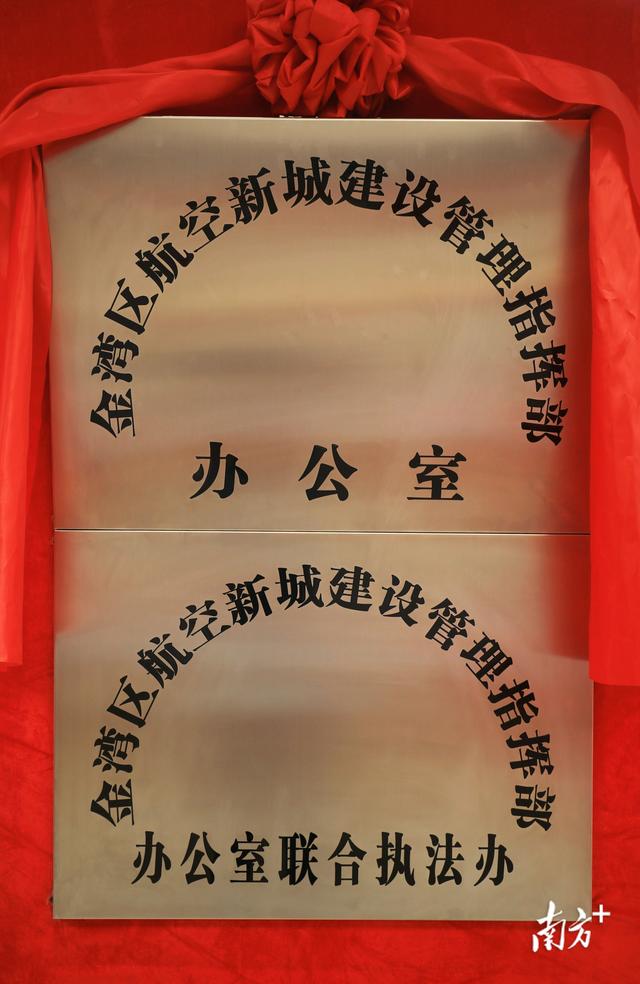 金湾区航空新城建设管理指挥部
办公室
金湾区航空新城建设管理指挥部
办公室联合执法办
南方+